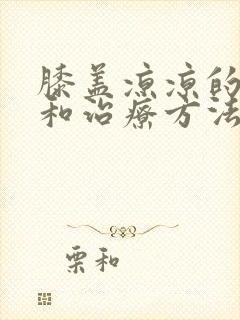 膝盖凉凉的
和治疗方法
栗和